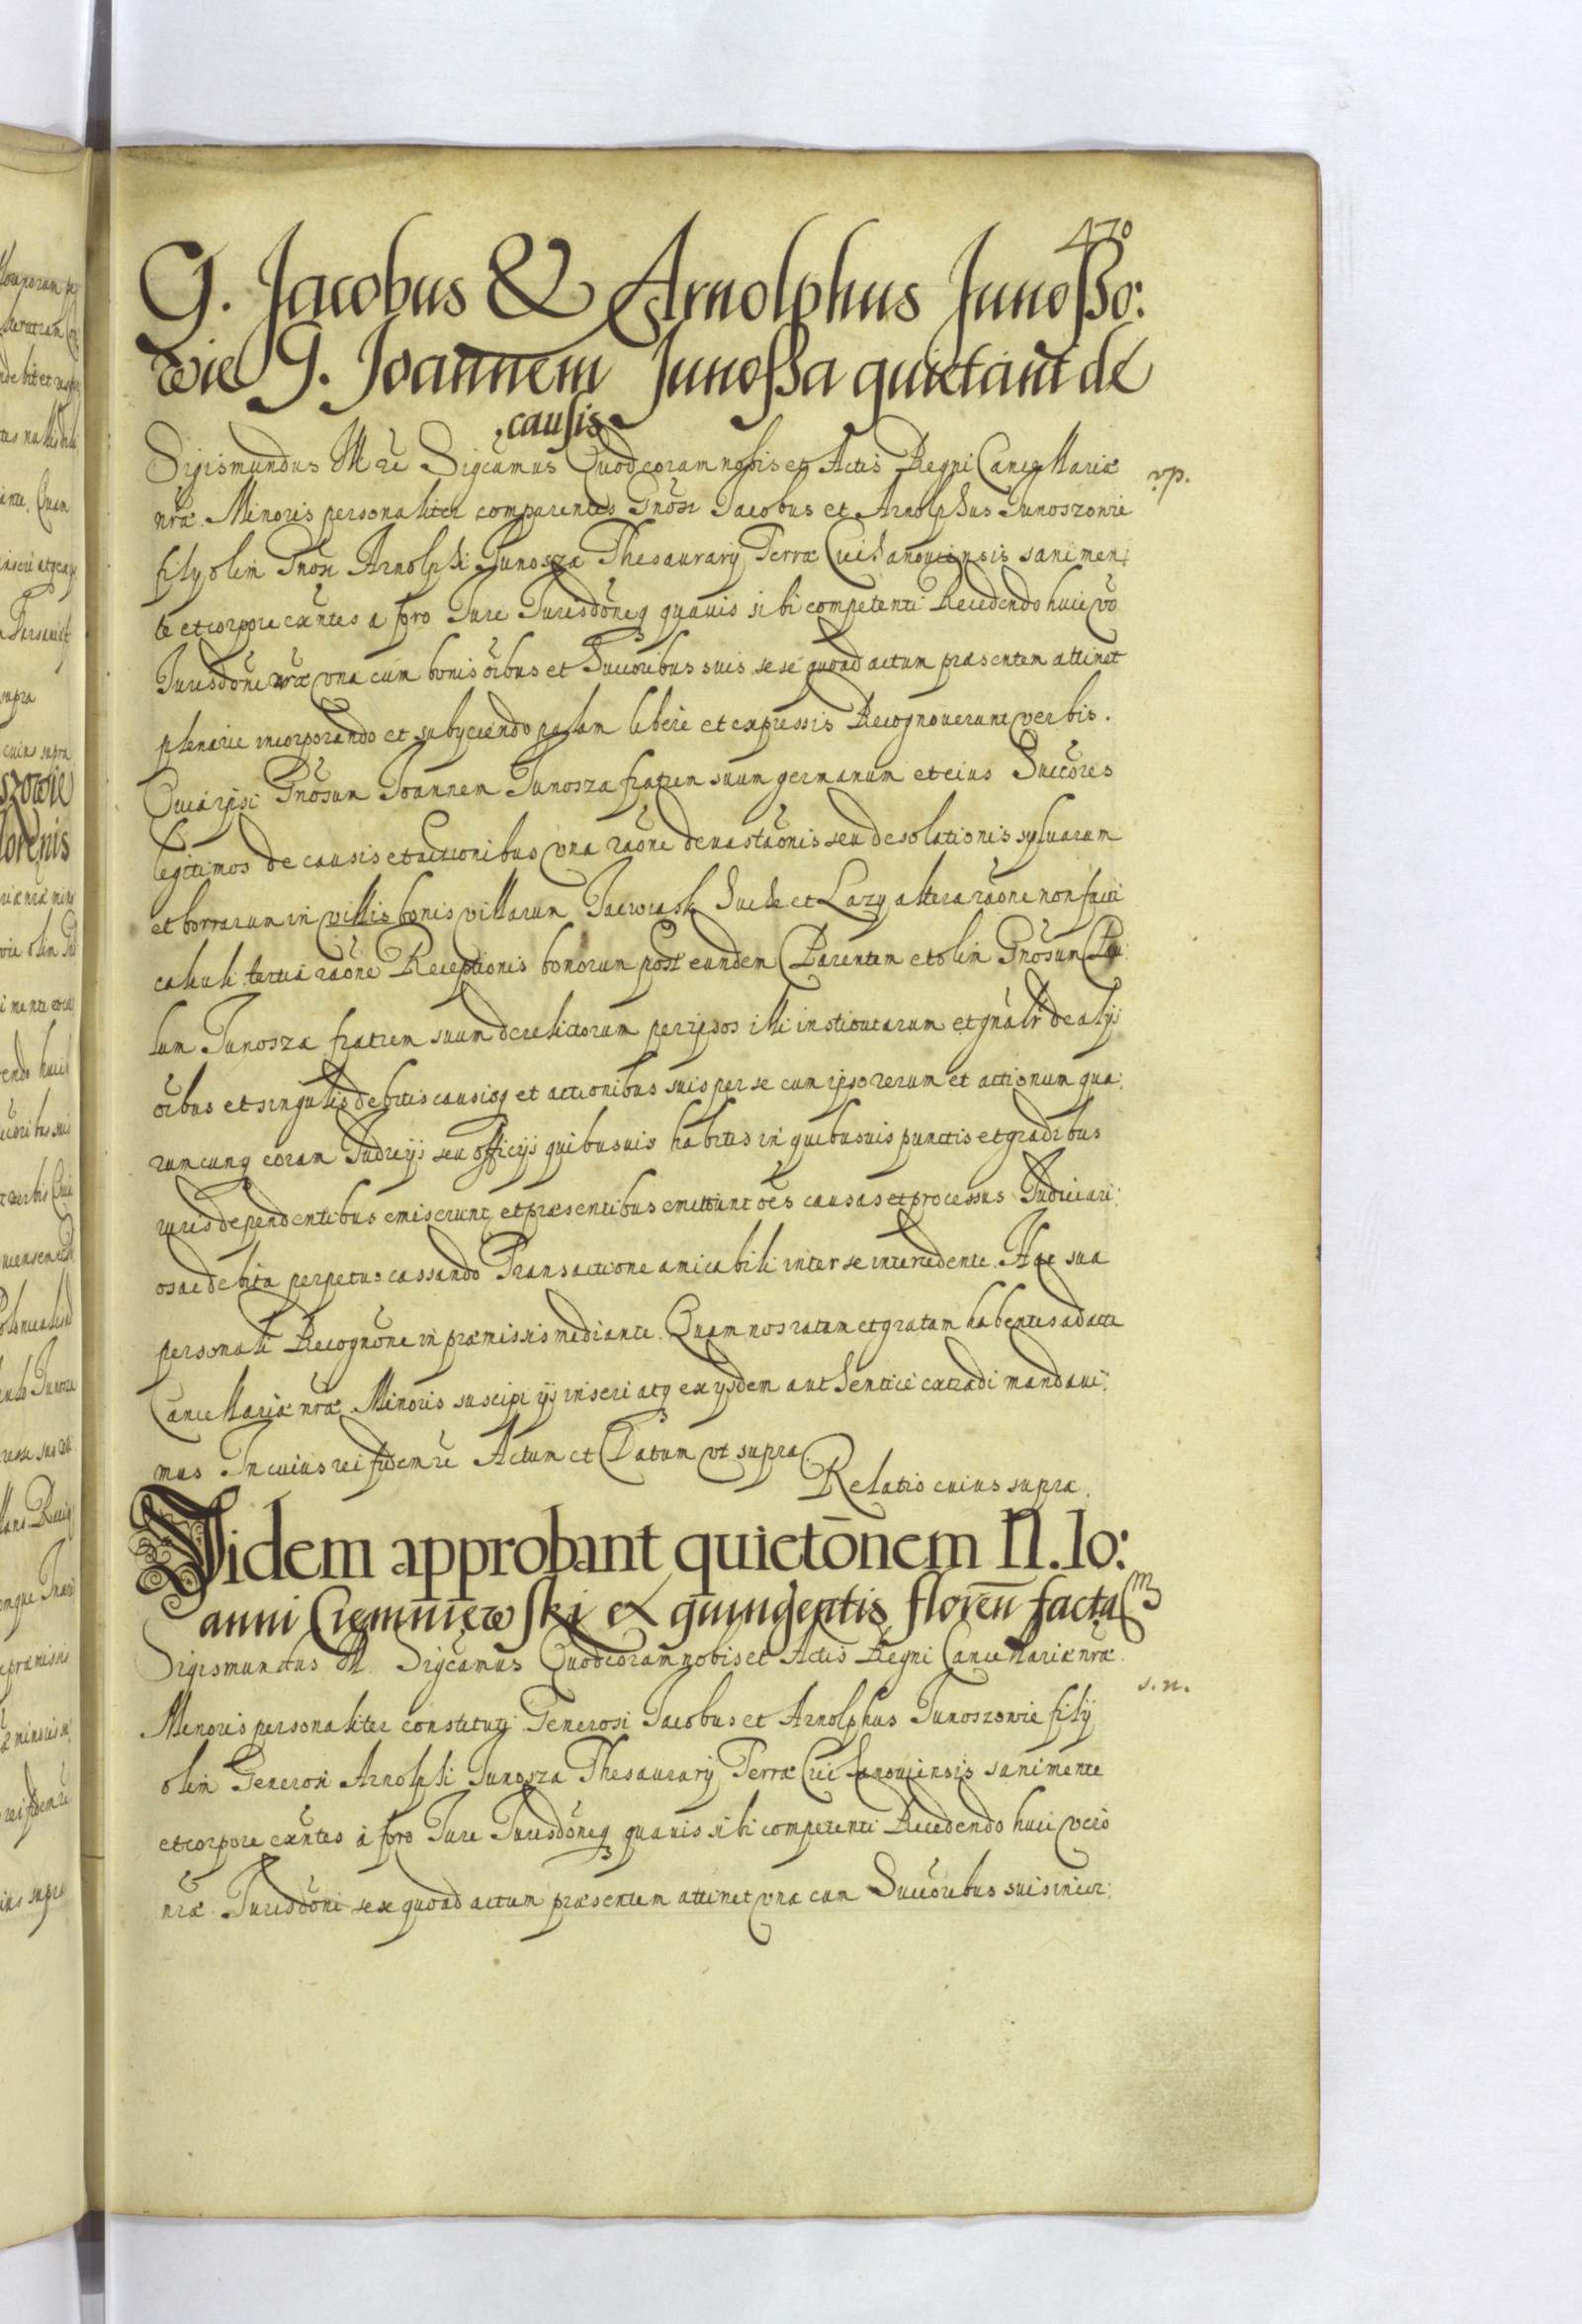 470
G. Jacobus & Arnolphus Junoßo:
wie G. Joannem Junoßa quietant de
causis
Sigismundus III etc Sigcamus Quod coram nobis et Actis Regni Cancellariæ
nræ Minoris personaliter comparentes Gnosi Jacobus et Arnolphus Junoszowie
filij olim Gnosi Arnolphi Junosza Thesaurarij Terræ Ciechanouiensis sani men:
te et corpore exntes a foro Jure Jurisdoneq quauis sibi competenti Recedendo huic vo
Jurisdoni nræ vna cum bonis oibus et Succoribus suis sese quoad actum præsentem attinet
plenarie incorporando et subyciendo palam libere et expressis Recognouerunt verbis.
Quia ipsi Gnosum Joannem Junosza fratrem suum germanum et eius Succores
legitimos de causis et actionibus vna raone deuastaonis seu desolationis syluarum
et borrarum in villis bonis villarum suche et Lazy altera raone non facti
calculi tertia raone Receptionis bonorum post eundem Parentem et olim Gnosum Pau:
lum Junosza fratrem suum derelictorum per ipsos illi institutarum et gnalr de alijs
oibus et singulis debitis causisq et actionibus suis per se cum ipso rerum et actionum qua:
rumcunq coram Judicijs seu officijs quibusuis habitis in quibusuis punctis et gradibus
iuris dependentibus emiserunt et præsentibus emittunt oes causas et processus Judiciari:
os ac debita perpetuo cassando Transactione amicabili inter se intercedente. Hac sua
personali Recognone in præmissis mediante. Quam nos ratam et gratam habentes ad acta
Cancellariæ nræ Minoris suscipi ijs inseri atq ex ijsdem authentice extradi mandaui:
mus In cuius rei fidem etc Actum et Datum vt supra.
Relatio cuius supra.
Iidem approbant quietonem N. Io:
anni Ciemniewski ex quingentis floren factam
Sigismundus III. Sigcamus Quod coram nobis et Actis Regni Cancellariæ nræ
Minoris personaliter constituti Generosi Jacobus et Arnolphus Junoszowie filij
olim Generosi Arnolphi Junosza Thesaurarij Terræ Ciechanouiensis sani mente
et corpore exntes à foro Jure Jurisdoneq quauis sibi competenti Recedendo huic vero
nræ Jurisdoni sese quoad actum præsentem attinet vna cum Succoribus suis incor: